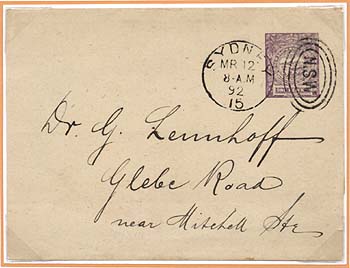 SYDNEY
MR 12
8-AM
92
15
NSW
Dr. G. Lennhoff
Glebe Road
near Mitchell Str